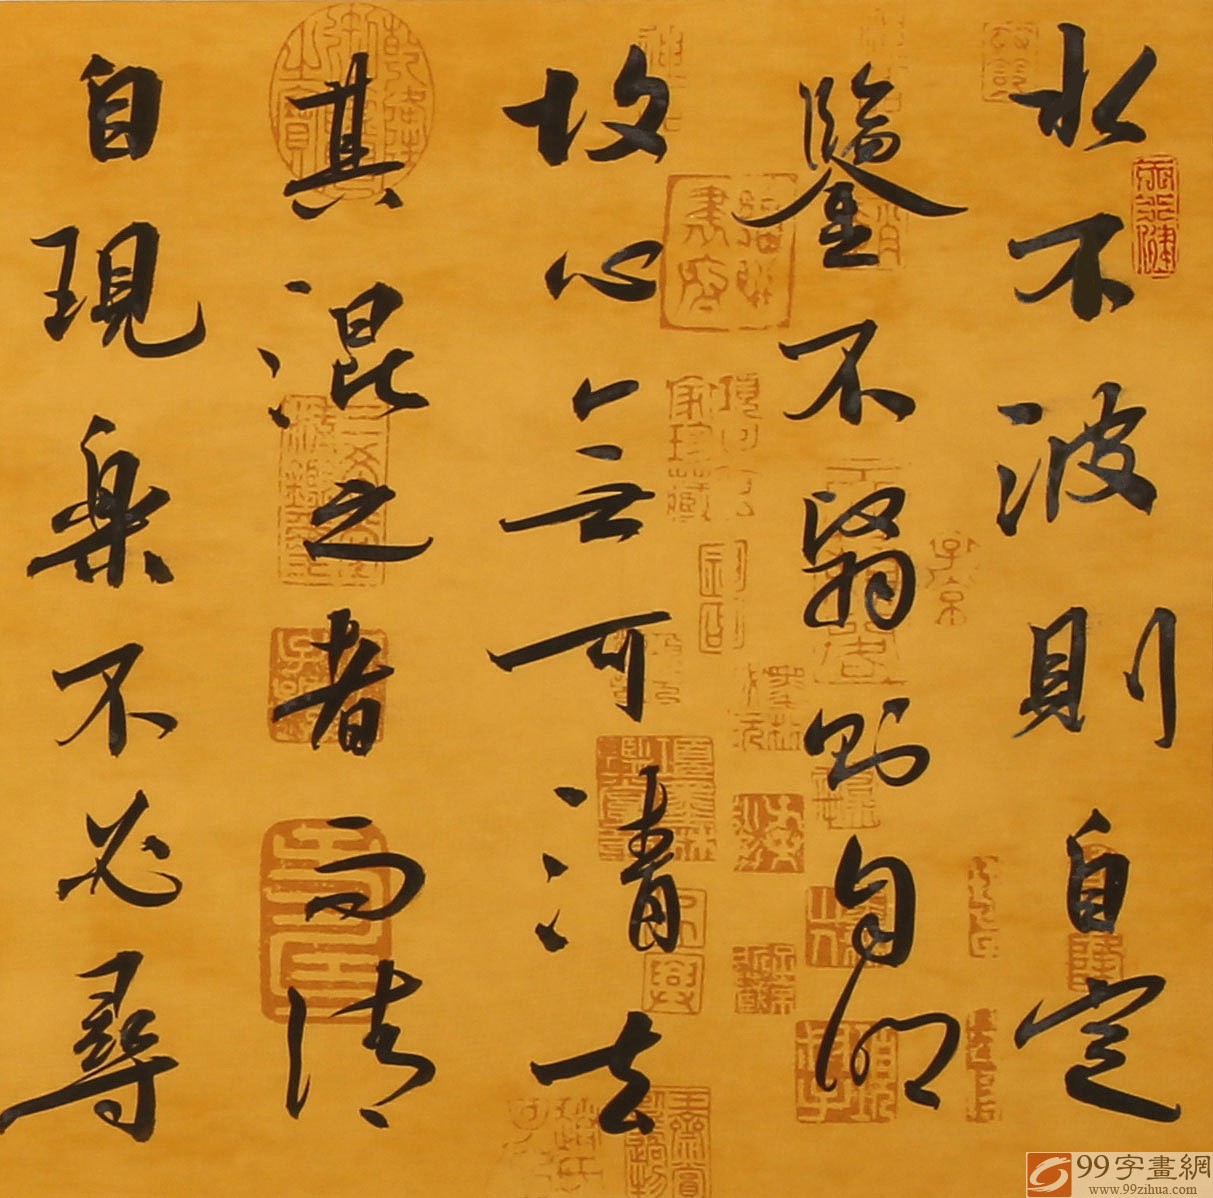 水不波則自定
鑒不翳則自明
故心無可清去
其混之者而清
自現樂不必尋
99字畫網
www.99zihua.com